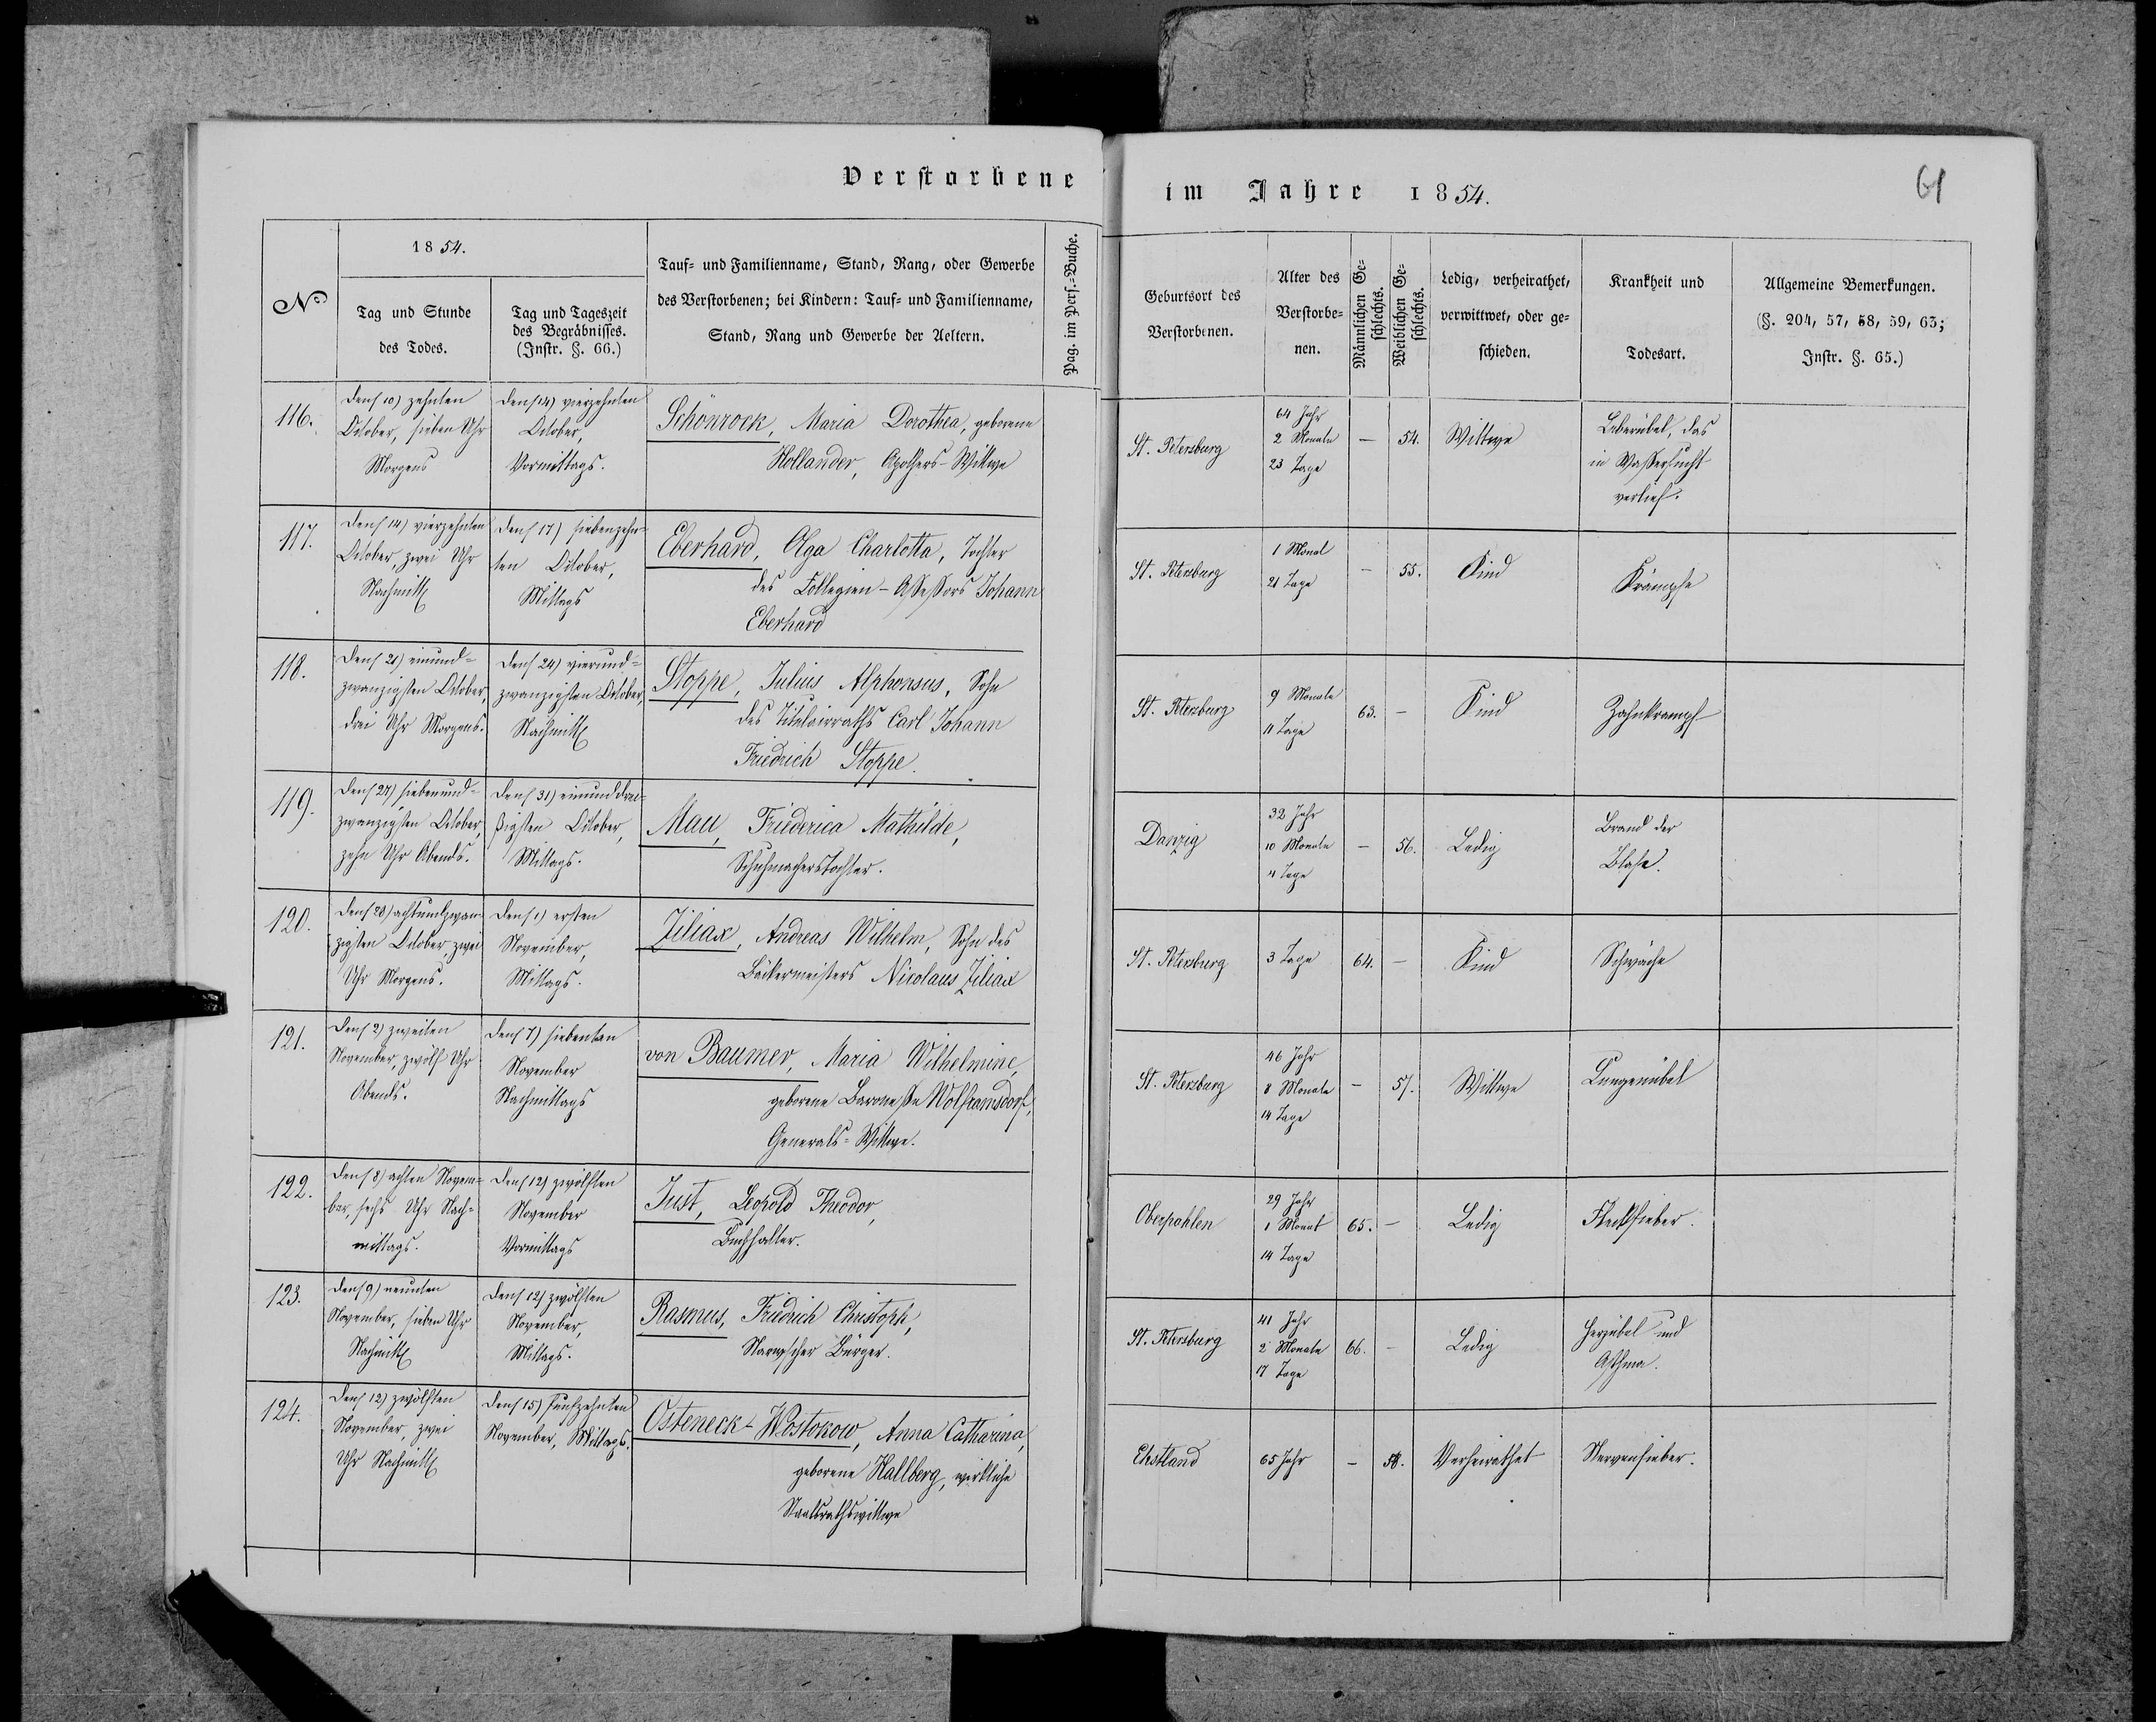 Verstorbene
im Jahre 1854.
61
No
1854.
Tag und Stunde
des Todes.
Tag und Tageszeit
des Begräbnisses.
(Instr. §. 66.)
Tauf- und Familienname, Stand, Rang, oder Gewerbe
des Verstorbenen; bei Kindern: Tauf- und Familienname,
Stand, Rang und Gewerbe der Aeltern.
Pag. im Pers.-Buche.
Geburtsort des
Verstorbenen.
Alter des
Verstorbe-
nen.
Männlichen Ge-
schlechts.
Weiblichen Ge-
schlechts.
Ledig, verheirathet,
verwittwet, oder ge-
schieden.
Krankheit und
Todesart.
Allgemeine Bemerkungen.
(§. 204, 57, 58, 59, 63;
Instr. §. 65.)
116.
den (10) zehnten
October, sieben Uhr
Morgens
den (14) vierzehnten
October,
Vormittags.
Schönrock, Maria Dorothea, geborene
Hollander, Apothers-Wittwe
St. Petersburg
64 Jahr
2 Monate
23 Tage
—
54.
Wittwe
Leberübel, das
in Wassersucht
verlief.
117.
den (14) vierzehnten
October, zwei Uhr
Nachmitt
den (17) siebenzehn-
ten October,
Mittags
Eberhard, Olga Charlotta, Tochter
des Collegien-Assessors Johann
Eberhard
St. Petersburg
1 Monat
21 Tage
—
55.
Kind
Krämpfe
118.
den (21) einund-
zwanzigsten October,
drei Uhr Morgens.
den (24) vierund-
zwanzigsten October,
Nachmitt
Stoppe, Julius Alphonsus, Sohn
des Titulairraths Carl Johann
Friedrich Stoppe.
St. Petersburg
9 Monate
11 Tage
63.
—
Kind
Zahnkrampf
119.
den (27) siebenund-
zwanzigsten October,
zehn Uhr Abends.
den (31) einunddrei-
ßigsten October,
Mittags.
Mau, Friederica Mathilde,
Schuhmacherstochter.
Danzig
32 Jahr
10 Monate
4 Tage
—
56.
Ledig
Brand der
Blase.
120.
den (28) achtundzwan-
zigsten October, zwei
Uhr Morgens.
den (1) ersten
November,
Mittags.
Ziliax, Andreas Wilhelm, Sohn des
Bäckermeisters Nicolaus Ziliax
St. Petersburg
3 Tage
64.
—
Kind
Schwäche
121.
den (2) zweiten
November, zwölf Uhr
Abends.
den (7) siebenten
November
Nachmittags
von Baumer, Maria Wilhelmine,
geborene Baronesse Wolframsdorf,
Generals-Wittwe.
St. Petersburg
46 Jahr
8 Monate
14 Tage
—
57.
Wittwe
Lungenübel
122.
den (8) achten Novem-
ber, sechs Uhr Nach-
mittags.
den (12) zwölften
November
Vormittags
Just, Leopold Theodor,
Buchhalter.
Oberpahlen
29 Jahr
1 Monat
14 Tage
65.
—
Ledig
Fleckfieber.
123.
den (9) neunten
November, sieben Uhr
Nachmitt
den (12) zwölften
November,
Mittags.
Rasmus, Friedrich Christoph,
Narwscher Bürger.
St. Petersburg
41 Jahr
2 Monate
17 Tage
66.
—
Ledig
Herzübel und
Asthma.
124.
den (12) zwölften
November, zwei
Uhr Nachmitt
den (15) funfzehnten
November, Mittags.
Osteneck-Wostokow, Anna Catharina,
geborene Hallberg, wirkliche
Staatsrathswittwe
Ehstland
65 Jahr
—
58.
Verheirathet
Nervenfieber.